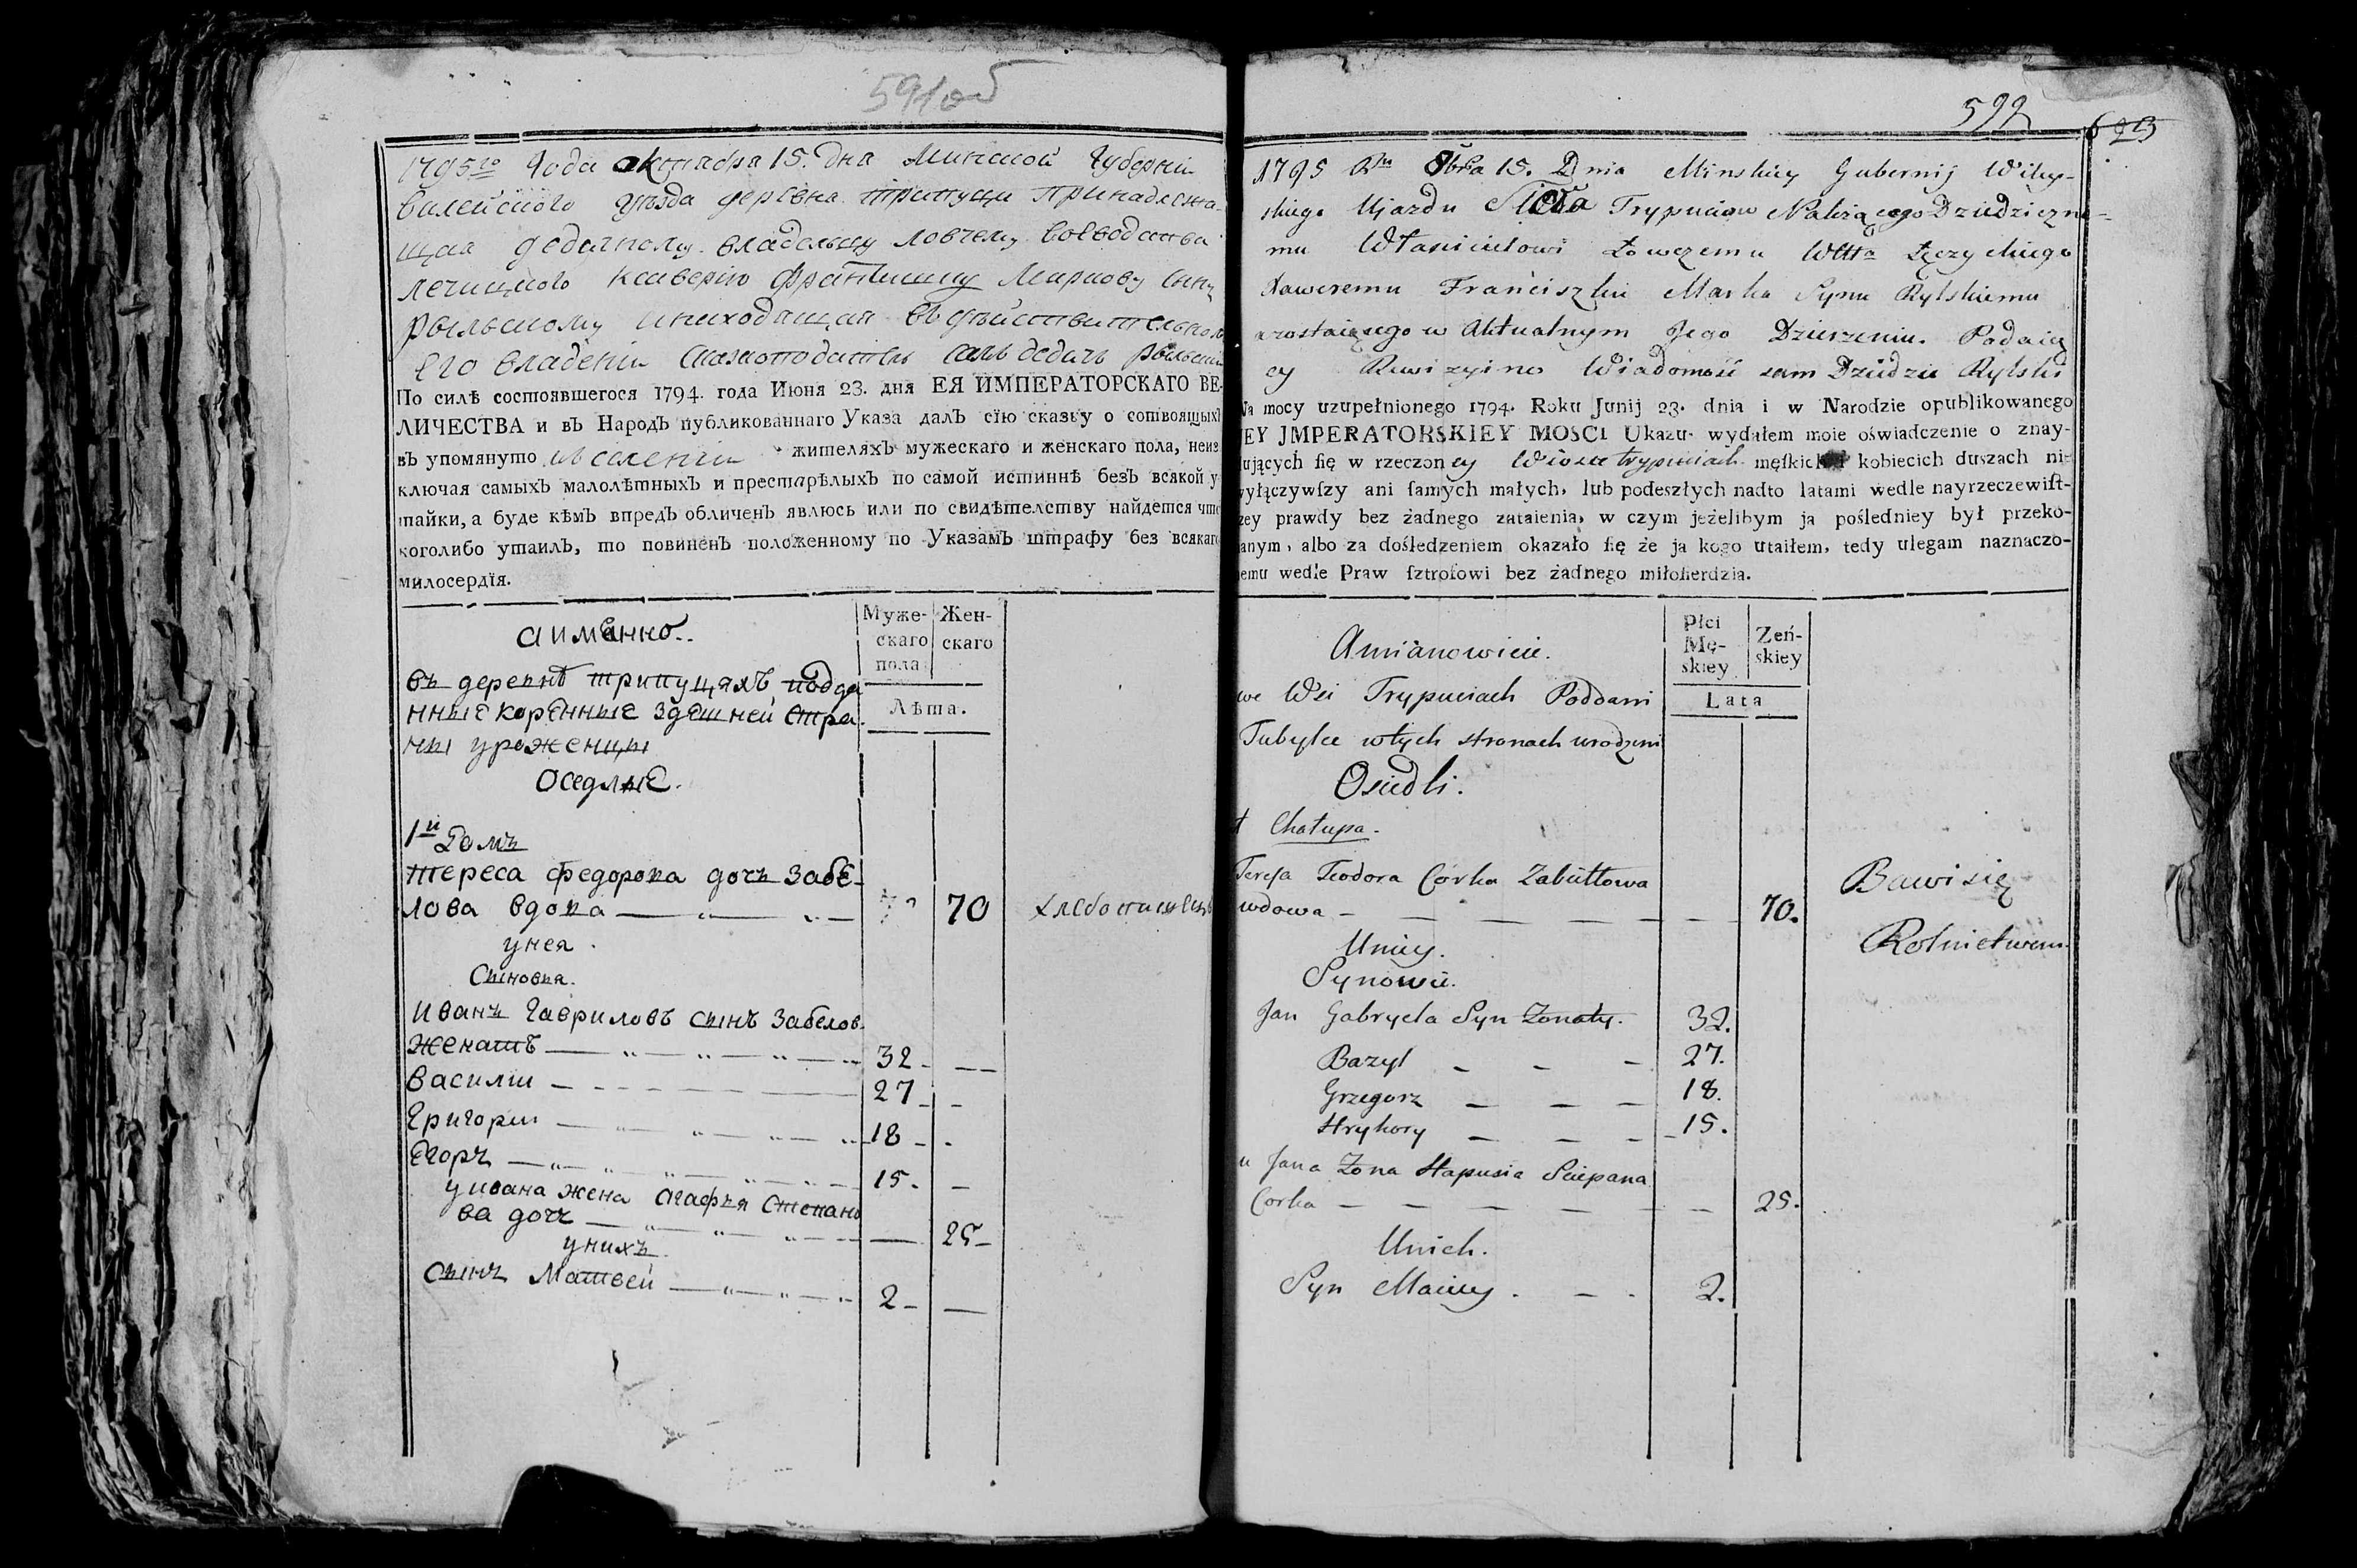 591об
1795го Года октября 15. дня Минской Губернии
вилейского уезда деревня трипуци принадлежа-
щая дедичному владельцу ловчему воеводства
ленчицкого Ксаверию Францишку Маркову сыну
рыльскому инаходящая въ действительном
Его владении сказкоподатель самъ дедичъ рыльский
По силѣ состоявшегося 1794. года Июня 23. дня ЕЯ ИМПЕРАТОРСКАГО ВЕ-
ЛИЧЕСТВА и въ Народъ публикованнаго Указа далъ сїю сказку о сотвоящыхъ
въ упомянуто мъ селении жителяхъ мужескаго и женскаго пола, неиз
ключая самыхъ малолѣтныхъ и престарѣлыхъ по самой истиннѣ безъ всякой у
тайки, а буде кѣмъ впредъ обличенъ явлюсь или по свидѣтелству найдется что
коголибо утаилъ, то повиненъ положенному по Указамъ штрафу без всякаго
милосердїя.
аимянно..
Муже-
скаго
пола
Жен-
скаго
Лѣта.
въ деревнѣ трипуцяхъ подда
нные коренные здешней стра.
ны уроженцы
оседлые.
1й Домъ
тереса федорова дочь забе-
лова вдова — 70 хлебопашецъ
унея.
Сыновья.
иванъ Гавриловъ сынъ Забелов.
женатъ — 32 — —
василии — 27 — —
Григории — 18 — -
Егоръ — 15. —
у ивана жена агафья степано
ва дочь — — 25 —
унихъ.
сынъ Матвей — 2 — —
592
629
1795 Rku 8bra 15. Dnia Minskiey Gubernij Wiley-
skiego Ujazdu Sioła Trypuciow Należącego Dziedziczne-
mu Włascicielowi Łowczemu Wttа Łęczyckiego
Xaweremu Franciszku Marka Synu Rylskiemu
azostaiącego w Aktualnym Jego Dzierzeniu. Podaią
cy Rewizyino Wiadomość sam Dziedzic Rylski
Na mocy uzupełnionego 1794. Roku Junij 23. dnia i w Narodzie opublikowanego
JEY JMPERATORSKIEY MOSCI Ukazu. wydałem moie oświadczenie o znay-
dujących się w rzeczon ey Wiosce trypuciach męskich i kobiecich duszach nie
wyłączywszy ani samych małych, lub podeszłych nadto latami wedle nayrzeczewist-
szey prawdy bez żadnego zataienia, w czym jeżelibym ja posledniey był przeko-
nanym, albo za dośledzeniem okazało się że ja kogo utaiłem, tedy ulegam naznaczo-
nemu wedle Praw sztrofowi bez żadnego miłosierdzia.
Amianowicie.
Płci
Mę-
skiey
Zeń-
skiey
Lata
we Wsi Trypuciach Poddani
Tubylce wtych stronach urodzeni
Osiedli.
1 Chałupa.
Teresa Teodora Corka Zabiełłowa
wdowa — 70. Bawi się
Rolnictwem
Uniey.
Synowie.
Jan Gabryela Syn Zonaty. 32.
Bazyl — — — 27.
Grzegorz — — — 18.
Hryhory — — — 15.
u Jana Zona Hapusia Sciepana
Corka — — — — — — 25.
Unich.
Syn Maciey . — . 2.